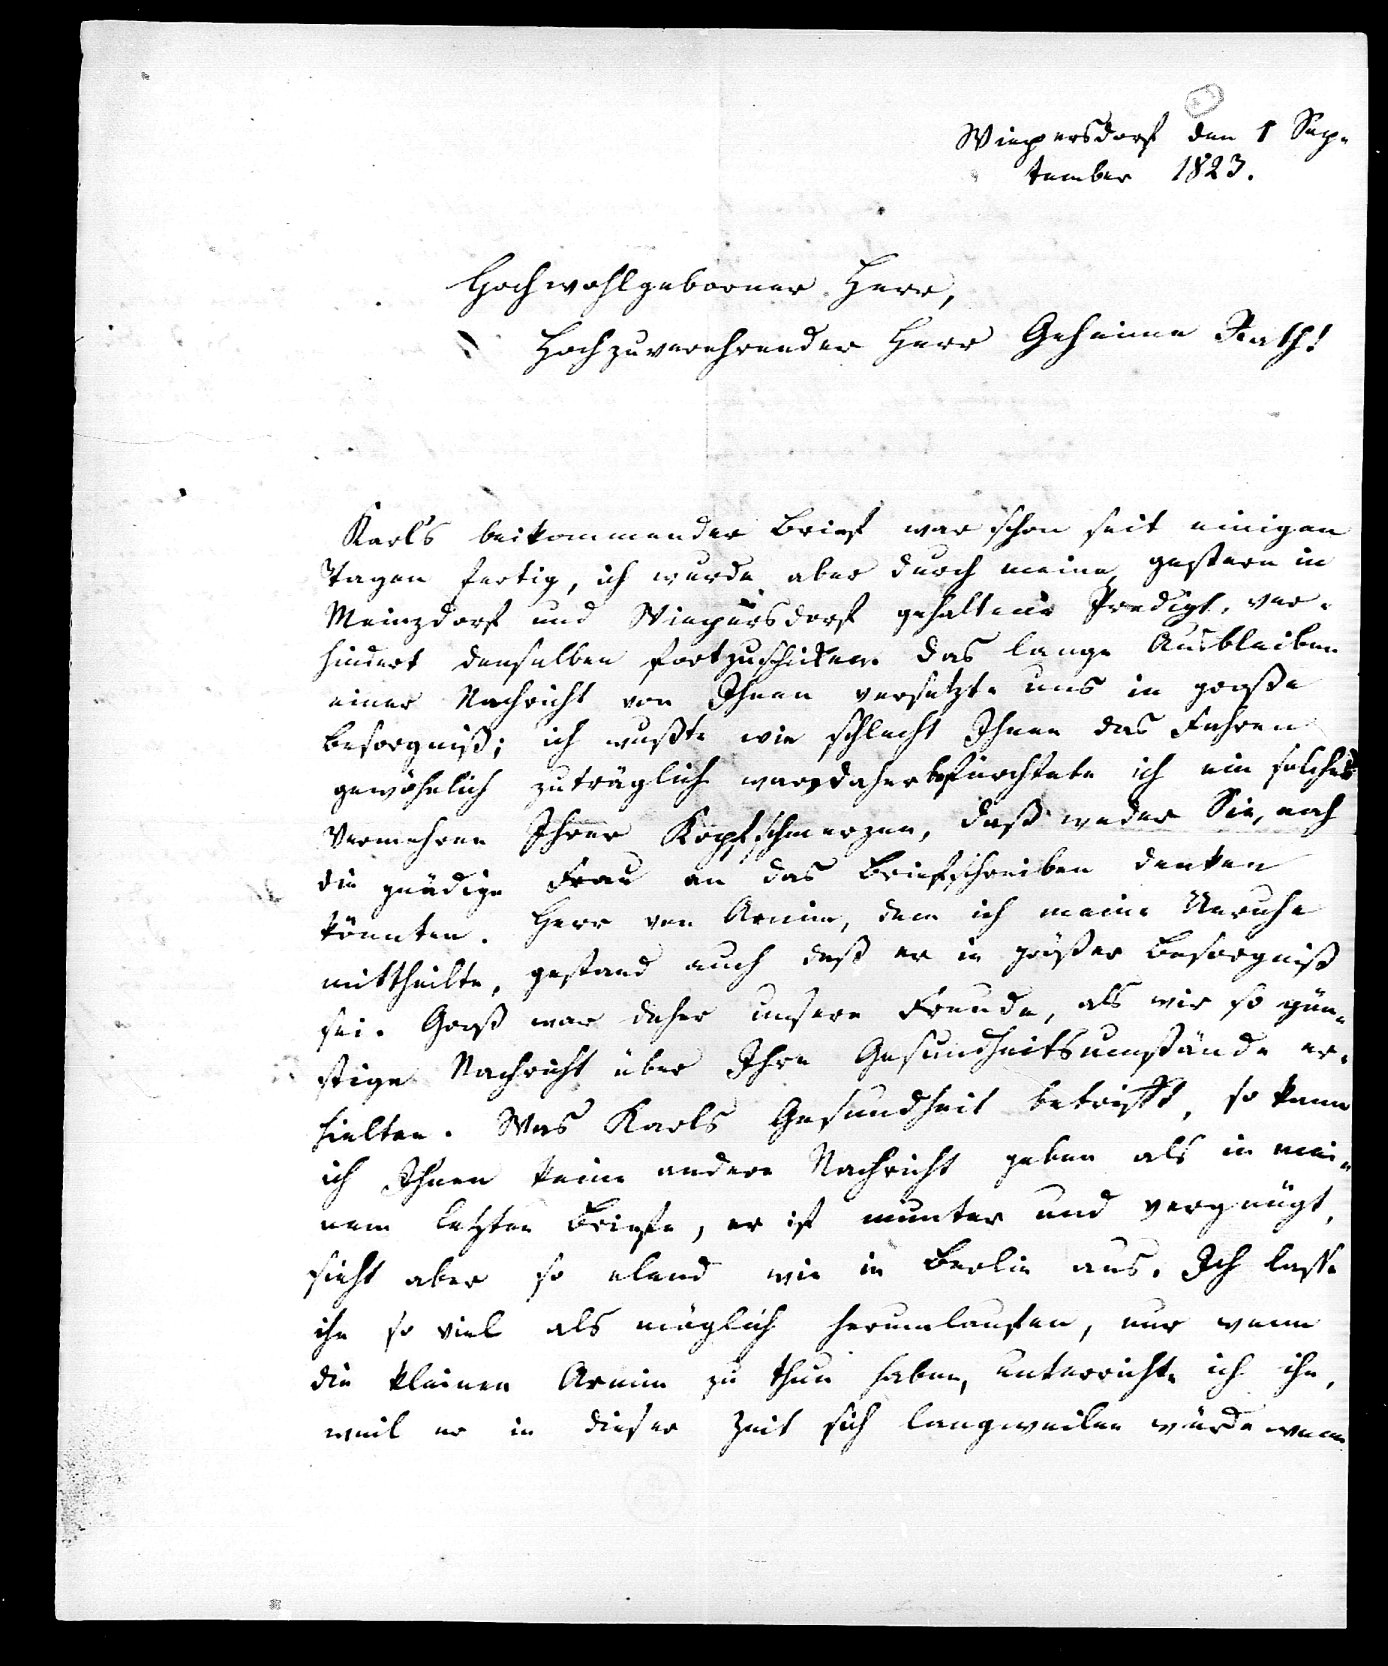 Wiepersdorf den 1 Sep-
tember 1823.
Hochwohlgeborner Herr,
Hochzuverehrender Herr Geheime Rath!
Karl's beikommender Brief war schon seit einigen
Tagen fertig, ich wurde aber durch meine, gestern in
Meinzdorf und Wiepersdorf gehaltene Predigt, ver-
hindert denselben fortzuschicken. Das lange Ausbleiben
einer Nachricht von Ihnen versetzte uns in große
Besorgniß; ich wußte wie schlecht Ihnen das Fahren
gewöhnlich zuträglich war, daher befürchtete ich ein solches
Vermehren Ihrer Kopfschmerzen, daß weder Sie, noch
die gnädige Frau an das Briefschreiben denken
könnten. Herr von Arnim, dem ich meine Unruhe
mittheilte, gestand auch daß er in großer Besorgniß
sei. Groß war daher unsere Freude, als wir so gün-
stige Nachricht über Ihre Gesundheitsumstände er-
hielten. Was Karls Gesundheit betrifft, so kann
ich Ihnen keine andere Nachricht geben als in mei-
nem letzten Briefe, er ist munter und vergnügt,
sieht aber so elend wie in Berlin aus. Ich lasse
ihn so viel als möglich herumlaufen, nur wenn
die kleinen Arnim zu thun haben, unterrichte ich ihn,
weil er in dieser Zeit sich langweilen würde wenn